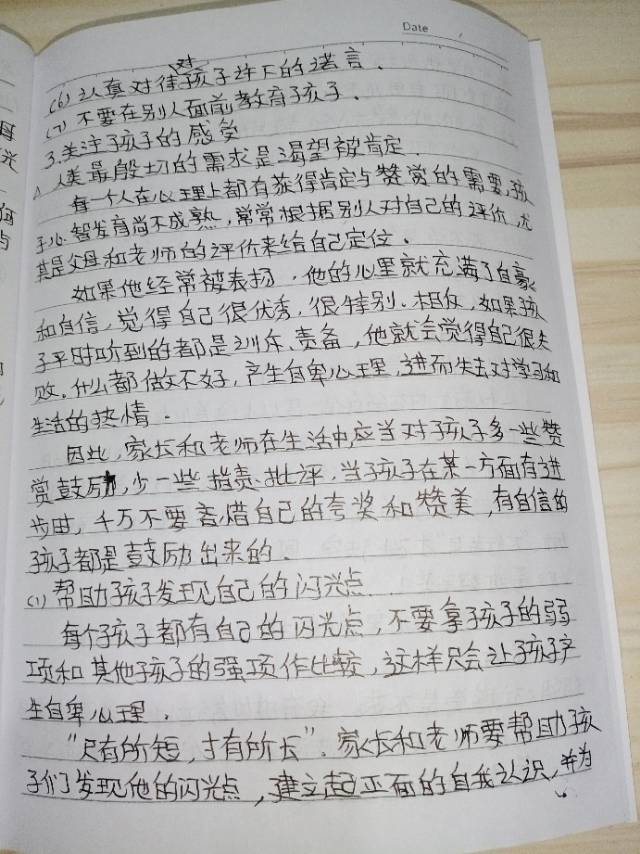 Date
(6)认真对待对孩子许下的诺言.
(7)不要在别人面前教育孩子.
3.关注孩子的感受
人类最殷切的需求是渴望被肯定.
每一个人在心理上都有获得肯定与赞赏的需要,孩
子心智发育尚不成熟,常常根据别人对自己的评价,尤
其是父母和老师的评价来给自己定位.
如果他经常被表扬,他的心里就充满了自豪
和自信,觉得自己很优秀,很特别.相反,如果孩
子平时听到的都是训斥、责备,他就会觉得自己很失
败,什么都做不好,产生自卑心理,进而失去对学习和
生活的热情.
因此,家长和老师在生活中,应当对孩子多一些赞
赏鼓励,少一些指责、批评,当孩子在某一方面有进
步时,千万不要吝惜自己的夸奖和赞美,有自信的
孩子都是鼓励出来的.
(1)帮助孩子发现自己的闪光点.
每个孩子都有自己的闪光点,不要拿孩子的弱
项和其他孩子的强项作比较,这样只会让孩子产
生自卑心理.
"尺有所短,寸有所长".家长和老师要帮助孩
子们发现他的闪光点,建立起正面的自我认识,并为